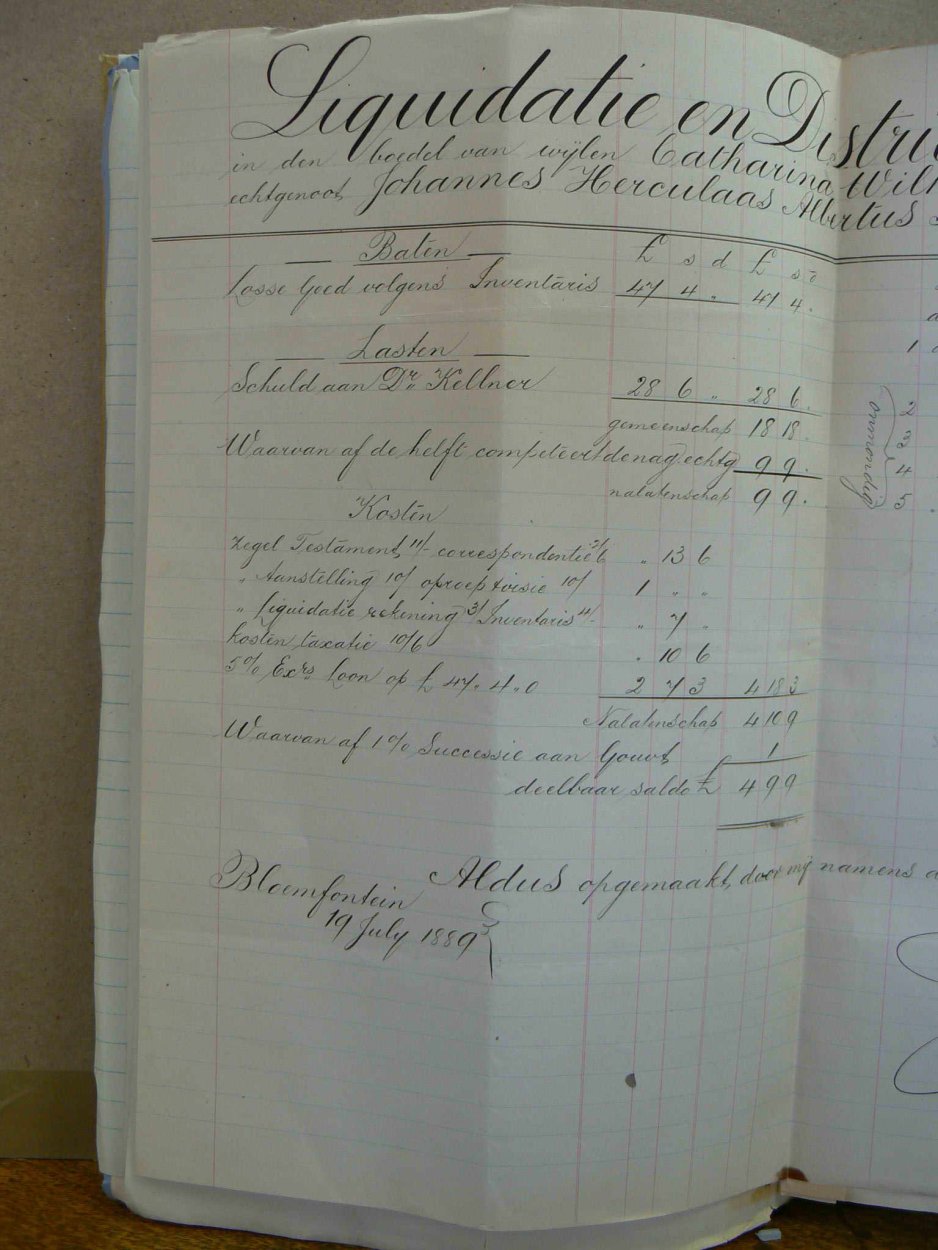 Liquidatie en Distri
in den boedel van wijlen Catharina Wilh
echtgenoot Johannes Herculaas Albertus
Baten £ s d £ s d
Losse Goed volgens Inventaris 47 4 " 47 4 "
Lasten
Schuld aan Dr. Kellner 28 6 " 28 6 "
gemeenschap 18 18 "
Waarvan af de helft competeert de nag. echtg 9 9 "
nalatenschap 9 9 "
Kosten
Zegel Testament 11/- correspondentie 2/6 " 13 6
" Aanstelling 10/ oproep tvisie 10/ 1 " "
" liquidatie rekening 3/ Inventaris 4/- " 7 "
Kosten taxatie 10/6 " 10 6
5% Exrs. loon op £ 47. 4. 0 2 7 3 4 18 3
Nalatenschap 4 10 9
Waarvan af 1% Successie aan Gouvt 1
deelbaar saldo £ 4 9 9
Bloemfontein Aldus opgemaakt, door mij namens
19 July 1889
onmondig